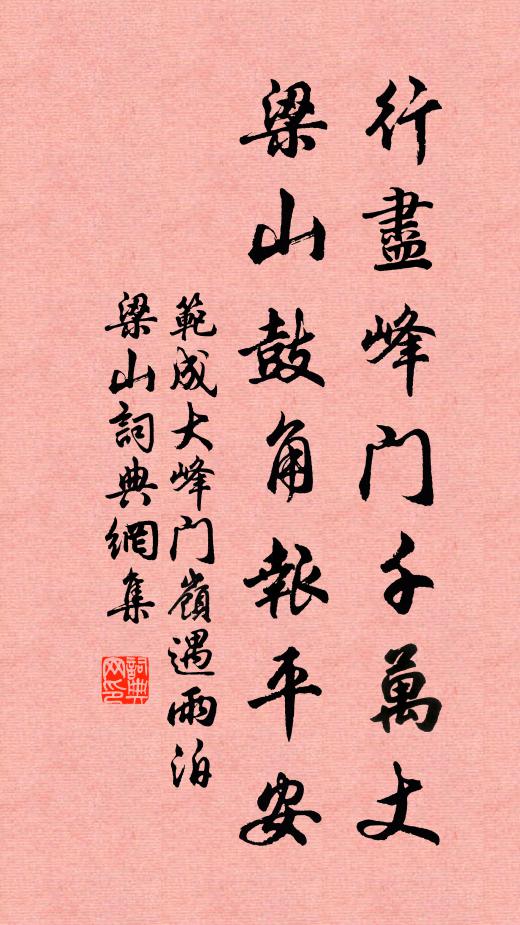 行盡峰门千萬丈
梁山鼓角報平安
範成大峰门嶺遇雨泊
梁山詞典網集
詞典网印